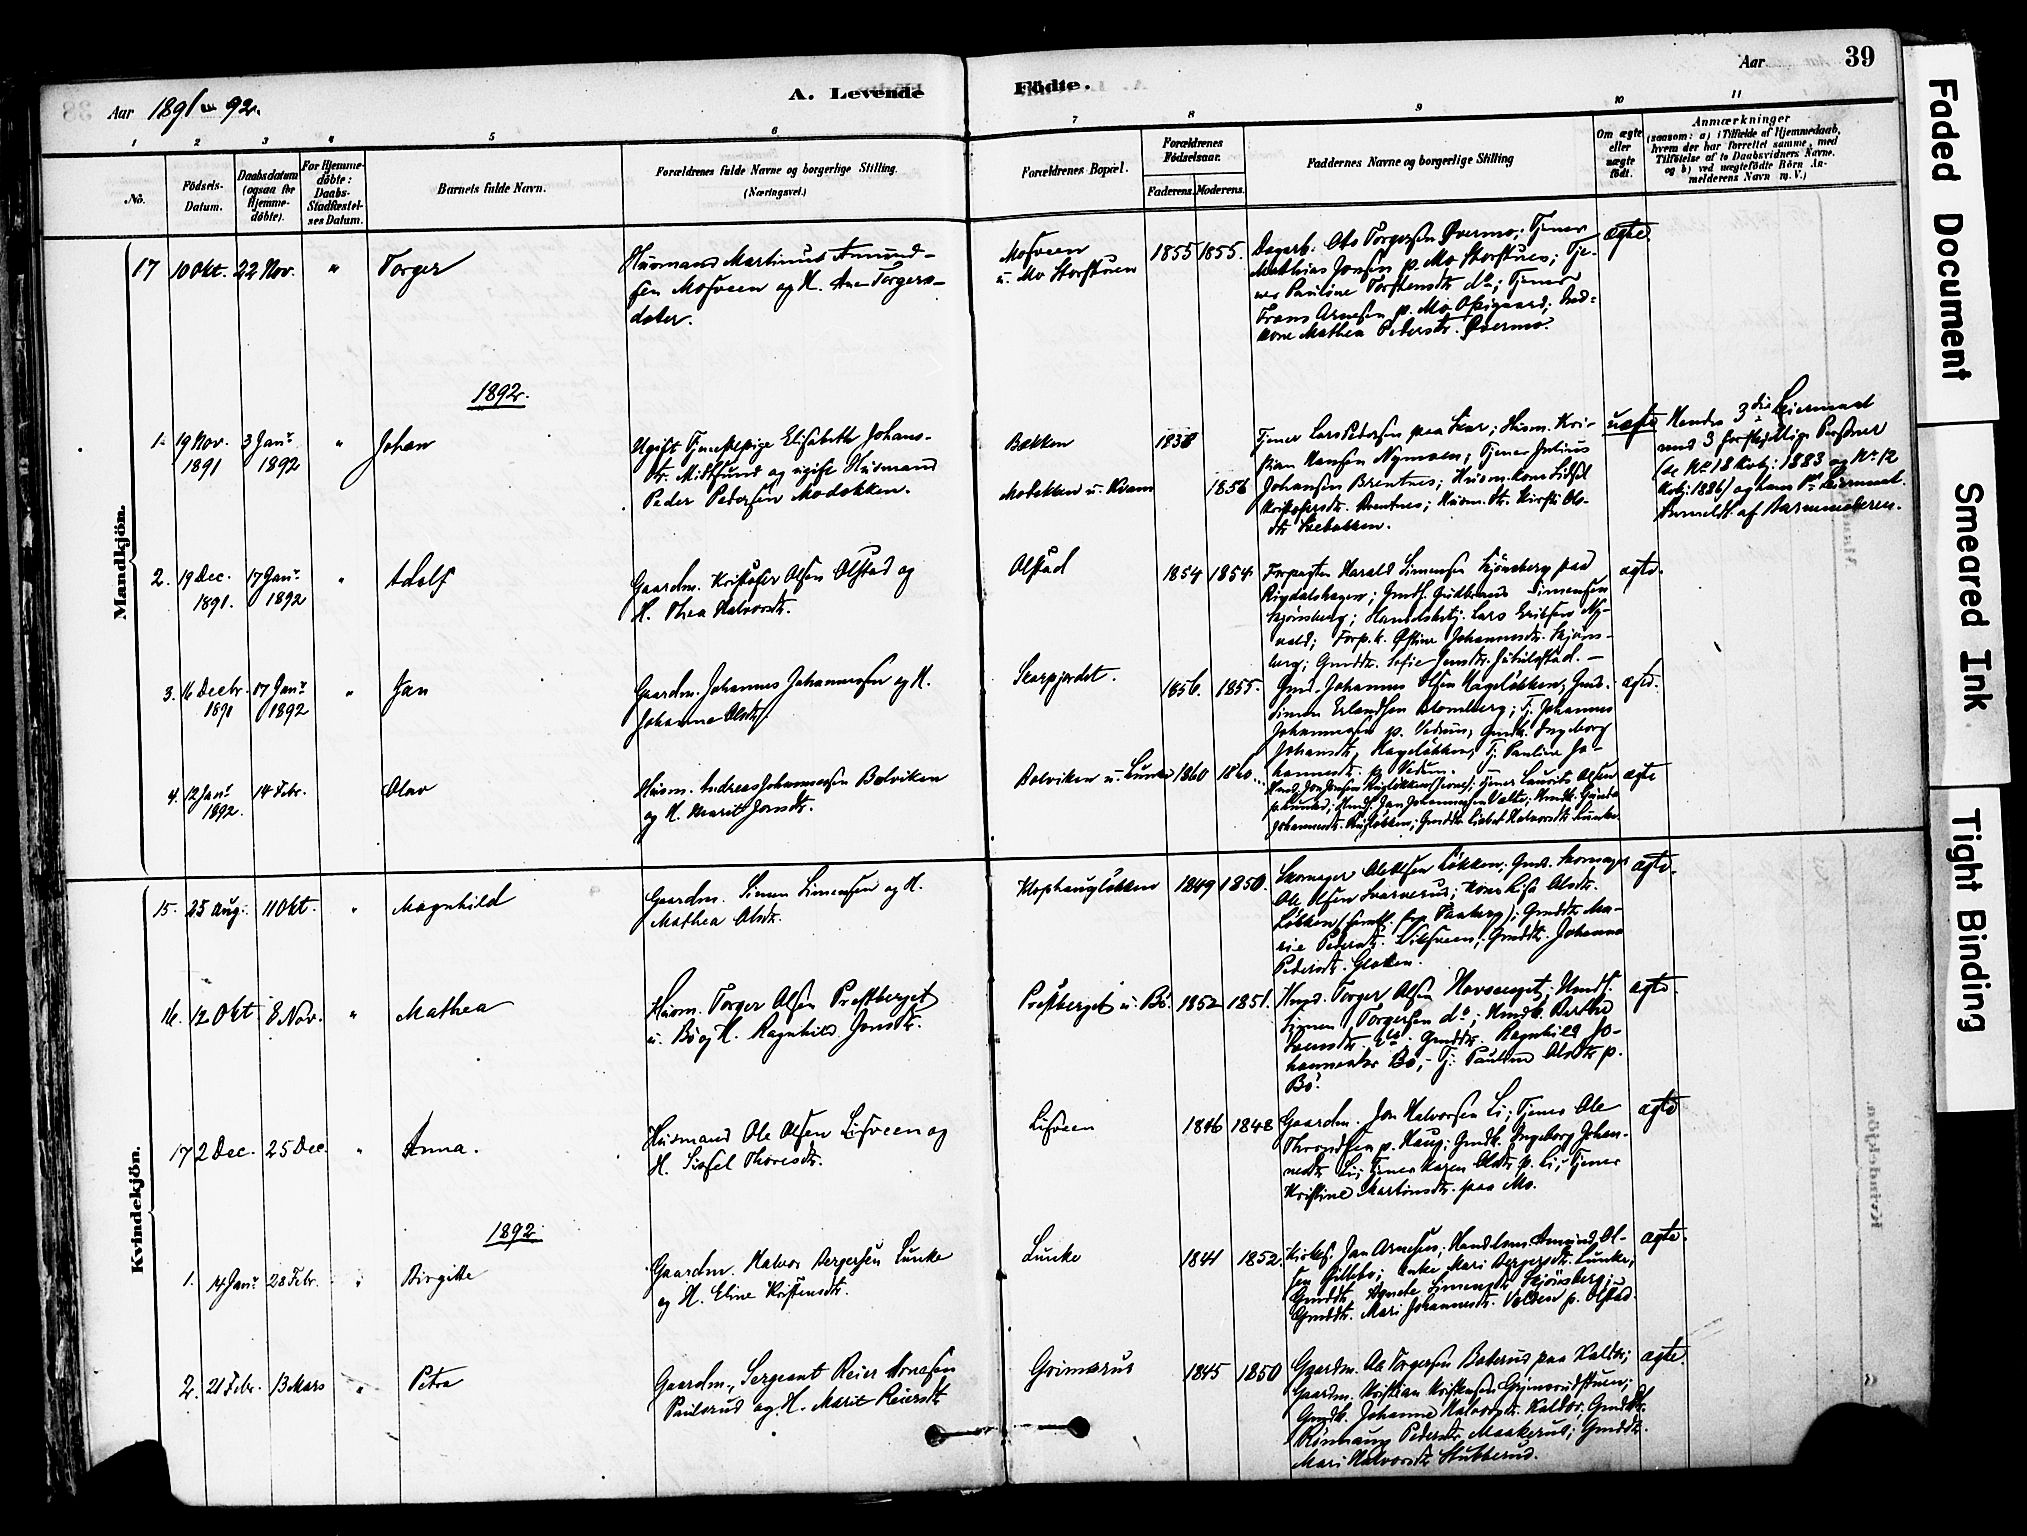 Aar 1891 - 92.
A. Levende
Födte.
Aar
39
Faded Document
Smeared Ink
Tight Binding
1
2
3
4
5
6
7
8
9
10
11
No.
Födsels-
Datum.
Daabsdatum
(ogsaa for
Hjemme-
döbte).
For Hjemme-
döbte:
Daabs-
Stadfæstel-
ses Datum.
Barnets fulde Navn.
Forældrenes fulde Navne og borgerlige Stilling.
(Næringsvei.)
Forældrenes Bopæl.
Forældrenes
Födselsaar.
Faderens.
Moderens.
Faddernes Navne og borgerlige Stilling
Om ægte
eller
uægte
födt.
Anmærkninger
(saasom: a) i Tilfælde af Hjemmedaab,
hvem der har forrettet samme, med
Tilföielse af to Daabsvidners Navne.
og b) ved uægtefödte Börn An-
melderens Navn m. V.)
Mandkjön.
17 10 Okt. 22 Nov. " Torger
Husmand Martinus Amund-
sen Mosveen og H. Ane Torgers-
dater.
Mosveen
u. Mo Storstuen
1855 1855.
Dagarb. Ole Torgersen Övermo; Tjener
Mathias Jonsen p. Mo Storstuen; Tje-
ner Pauline Torstensdtr. do; Tjener
Frans Arnesen p. Mo Opigaard;
Mathea Pedersdtr. Övermo.
ægte.
1892.
1. 19 Nov. 1891 3 Janr 1892 " Johan
Ugift Tjenestepige Elisabeth Johans-
dtr. Midtsund og ugift Husmand
Peder Pedersen Modokken.
Bakken
Modokken u. Kvam
1838
1856
Tjener Lars Pedersen paa ; Husm. Kri-
stian Hansen Nymoen; Tjener Julius
Johansen Brentnes; Husm. Kone Sidsel
Kristofersdtr. Brentnes; Husm. Dtr. Kirsti Ols-
dtr. bakken.
uægte
Hendes 3die Leiermaal
med 3 forskjellige Personer
(se No 18 Kvkj. 1883 og No 12
Kvkj. 1886) og hans 1ste Leiermaal.
Anmeldt af Barnemoderen.
2. 19 Dec. 1891. 17 Janr 1892 " Adolf
Gaardm. Kristofer Olsen Olstad og
H. Thea Halvorsdtr.
Olstad
1854 1854
Forpagter Harald Simensen Skjönsberg paa
Rigdalshagen; Gmds. Gudbrand Simensen
Skjönsberg; Handelsbetj. Lars Eriksen Ny-
vold; Forp. k. Östine Johannesdtr. Skjöns-
berg; Gmddtr. Sofie Jensdtr. Jutulstad. —
ægte.
3. 16 Decbr. 1891 17 Janr 1892 " Jan
Gaardm. Johannes Johannessen og H.
Johanne Olsdtr.
Skarpjordet.
1856. 1855.
Gmd. Johannes Olsen Hagelökken; Gmd.
Simen Erlandsen Blomberg; Tj. Johannes
Johannessen p. Vedum; Gmdk. Ingeborg
Johansdtr. Hagelökken; Tj. Pauline Jo-
hannesdtr. p. Vedum.
ægte.
4. 12 Janr 1892. 14 Febr. Olav
Husm. Andreas Johannessen Bolviken
og H. Marit Jonsdtr.
Bolviken u. Lunke
1860 1860.
Husm. Jon Jonsen; Tjener Laurits Olsen
p. Lunke; Jan Johannessen
Johannesdtr. lökken; Gmddtr. Lisbet Halvorsdtr. Lunke
ægte
Kvindekjön.
15. 25 Aug. 11 Okt. " Magnhild
Gaardm. Simen Simensen og H.
Mathea Olsdtr.
Klophauglökken
1849 1850.
Skomager Ole Olsen Lökken; Gmd. Skomager
Ole Olsen Svarverud; Kone Lisa Olsdtr.
Lökken; Gmddtr. Ma-
rie Pedersdtr. ; Gmddtr. Johanne
Pedersdtr. Glokken.
ægte.
16. 12 Okt. 8 Nov. " Mathea
Husm. Torger Olsen Prestberget
u. Bö og H. Ragnhild Jonsdtr.
Prestberget u. Bö.
1852 1851.
Hmd. Torger Olsen Havsenget; Hmds.
Simen Torgersen do; Hmdk. Berthe
Svensdtr. do; Gmddtr. Ragnhild Jo-
hannesdtr Bö; Tj. Pauline Olsdtr p.
Bö.
ægte.
17 2 Dec. 25 Dec. " Anna.
Husmand Ole Olsen Lisveen og
H. Sissel Thoresdtr.
Lisveen
1846 1848
Gaardm. Jon Halvorsen Li; Tjener Ole
Throndsen p. Haug; Gmdk. Ingeborg Johan-
nesdtr Li; Tjener Karen Olsdtr p. Li; Tjener
Kristine Martinsdtr. paa Mo.
ægte
1892
1. 14 Janr 28 Febr. " Birgitte
Gaardm. Halvor Bergersen Lunke
og H. Eline Kristensdtr.
Lunke
1841 1852.
Kirkes. Jan Arnesen; Handelsm. Amund Ol-
sen Gillebo; Enke Mari Bergersdtr. Lunke;
Gmddtr. Agnete Simensdtr Skjönsberg;
Gmddtr. Mari Johannesdtr. Volden p. Olstad.
ægte.
2. 21 Febr. 13 Mars " Petra
Gaardm., Sergeant Reier Arnesen
Paulsrud og H. Marit Reiersdtr
Grimsrud
1845 1850
Gaardm. Ole Torgersen Boberud paa Kaldor;
Gaardm. Kristian Kristensen Grimsrudstuen;
Gmdk. Johanne Halvorsdtr. Kaldor; Gmddtr.
Rönnaug Pedersdtr. Maakerud; Gmddtr.
Mari Halvorsdtr Stubberud.
ægte.